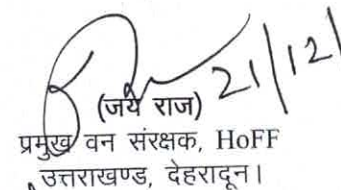 21/12/
(जय राज)
प्रमुख वन संरक्षक, HoFF
उत्तराखण्ड, देहरादून।